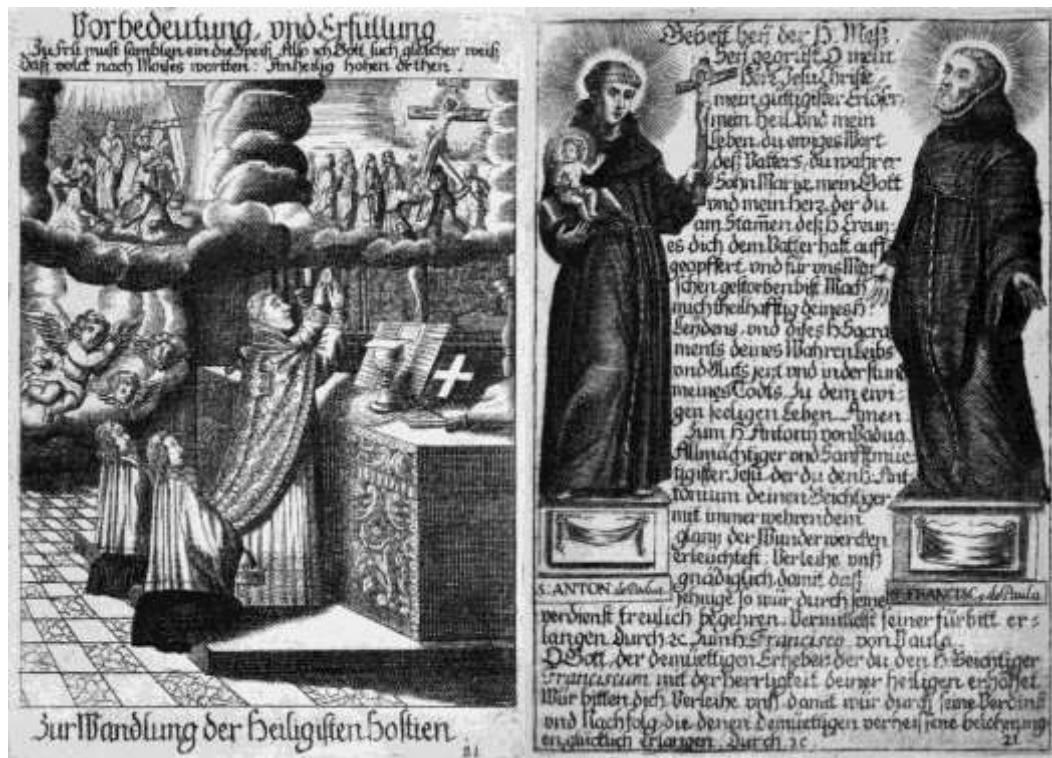 Vorbedeutung, vnd Erfüllung
Zu Früe must samblen ein die Speiß, Also ich Gott such gleicher weiß
Daß volck nach Moises wortten: An heilig hohen orthen.
Zur Wandlung der Heiligisten Hostien
21
Gebett heÿ der H. Meß.
Seÿ gegrüst O mein
Herz Jesu Christe,
mein güttigster Erlöser,
mein Heil vnd mein
Leben, du ewiges Wort
deß Vatters, du wahrer
Sohn Mariæ, mein Gott
vnd mein Herz, der du
am Stam̄en deß H. Creuz-
es dich dem Vatter hast auff-
geopffert, vnd für vns Men-
schen gestorben bist. Mach
mich theilhafftig deines H.
Leÿdens, vnd dises H. Sacra-
ments deines Wahren Leibs
vnd Bluts jezt vnd in der stund
meines Todts, Zu dem ewi-
gen seeligen Leben. Amen
Zum H. Antoni von Padua.
Allmächtiger vnd Sanfftmüe-
tigster Jesu, der du den H. Ant-
tonium deinen Beichtiger
mit immer wehrendem
glanz der Wunderwercken
erleuchtest: Verleihe vnß
gnädiglich damit daß
jehnige so wür durch seine
S. ANTON de Padua.
S. FRANCISC, de Paula
verdienst treulich begehren, Vermittlst seiner fürbitt er-
langen. Durch ꝛc. Zum H. Francisco von Paula.
O Gott, der demüettigen Erheber, der du den H. Beichtiger
Franciscum mit der Herrligkeit deiner heiligen erhöhet,
Wür bitten dich Verleihe vnß damit wür durch seine Verdinst
vnd Nachfolg die denen Demüettigen verheissene belohnung
en, glücklich Erlangen. Durch ꝛc.
21